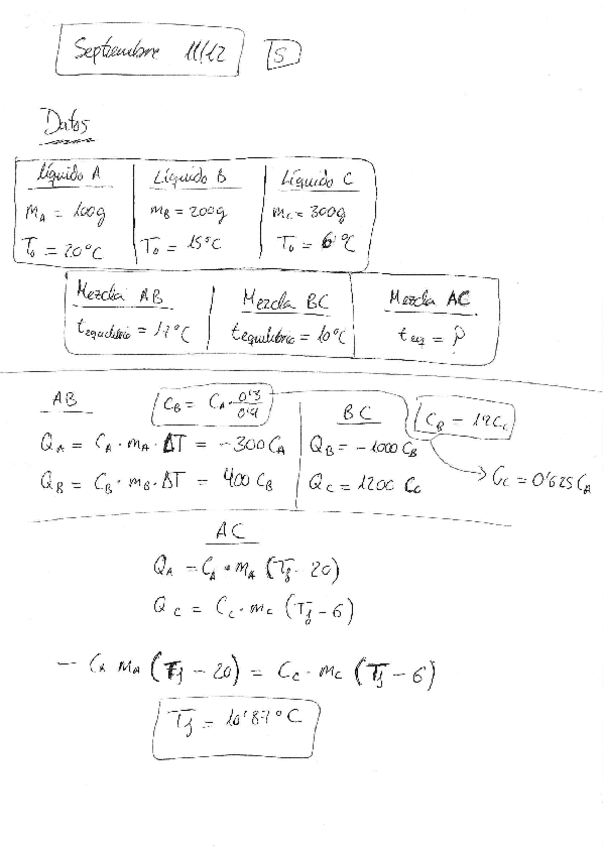 Septiembre 11/12 5
Datos
Líquido A Líquido B Líquido C
mA = 100g mB = 200g mC = 300g
T₀ = 20°C T₀ = 15°C T₀ = 6°C
Mezcla AB Mezcla BC Mezcla AC
t equilibrio = 17°C t equilibrio = 10°C t eq = ?
AB CB = CA · 0'3/0'4 BC CB = 1'2 CC
QA = CA · mA · ΔT = -300 CA QB = -1000 CB
QB = CB · mB · ΔT = 400 CB QC = 1200 CC → CC = 0'625 CA
AC
QA = CA · mA (Tf - 20)
QC = CC · mC (Tf - 6)
- CA mA (Tf - 20) = CC · mC (Tf - 6)
Tf = 10'87°C